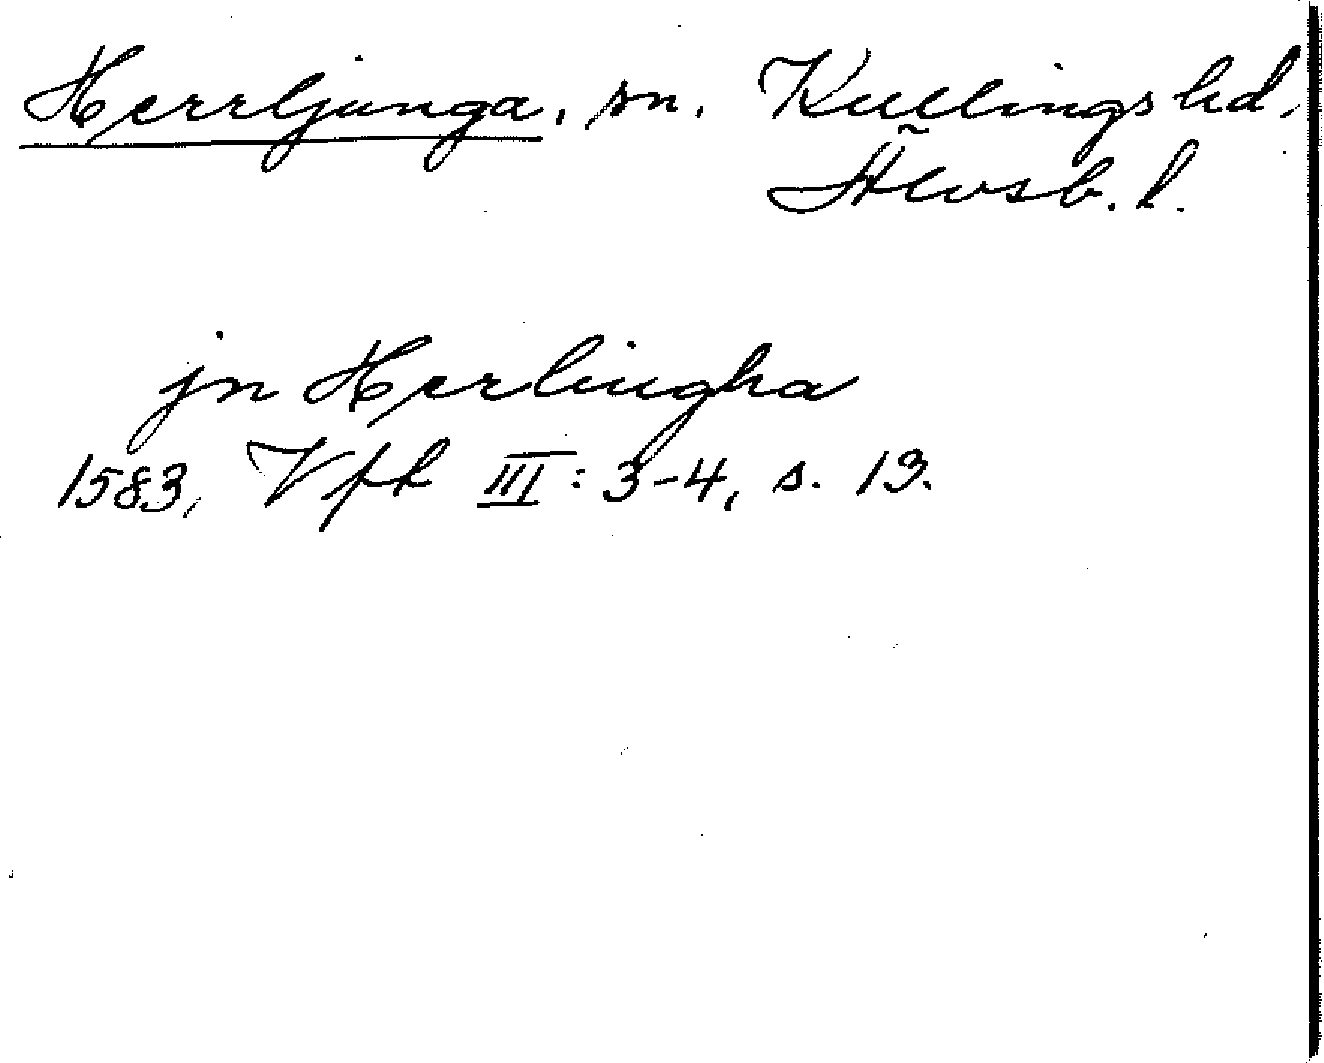 Herrljunga, sn. Kullings hd,
Älvsb. l.
jn Herlingha
1583, Vfk III: 3-4, s. 13.